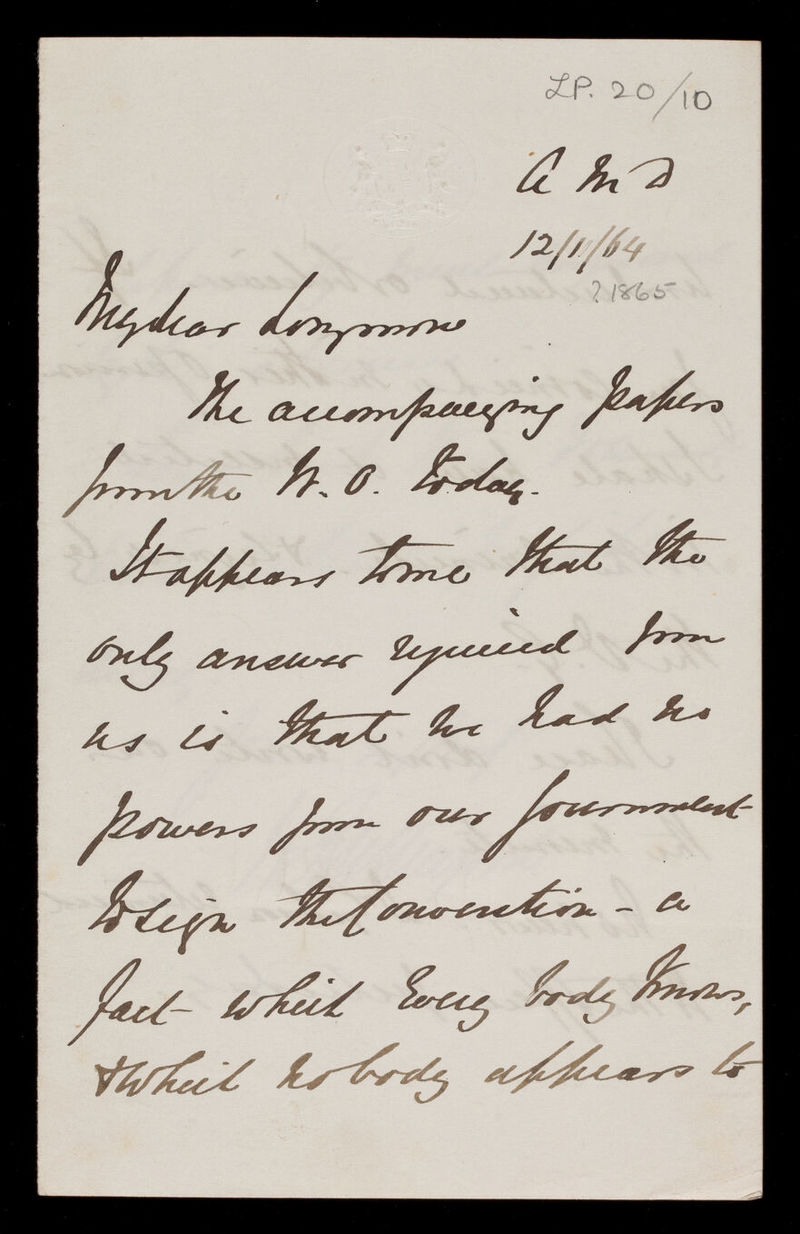 LP. 20/10
A M D
12/11/64
? 1865
My dear Longmore
The accompanying papers
from the W. O. today.
It appears to me that the
only answer required from
us is that we had no
powers from our Government
to sign the Convention - a
fact which Every body knows,
& which nobody appears to